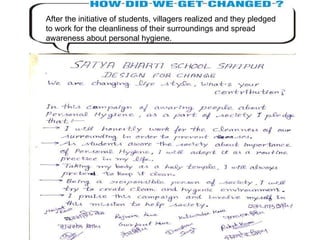 HOW DID WE GET CHANGED ?
After the initiative of students, villagers realized and they pledged
to work for the cleanliness of their surroundings and spread
awareness about personal hygiene.
SATYA BHARTI SCHOOL SAFIPUR
DESIGN FOR CHANGE
We are changing life style, What's your
contribution?
In this campaign of awaring people about
Personal Hygiene, as a part of society I pledge
that:—
→ I will honestly work for the cleanness of our
surrounding in order to prevent
→ As students aware the society about importance
of Personal Hygiene, I will adopt it as a routine
practice in my life.
→ Taking my body as a holy temple, I will always
pretend to keep it clean.
→ Being a responsible person of society, I will
try to create clean and hygienic environment.
→ I praise this campaign and involve myself in
this mission to help society.